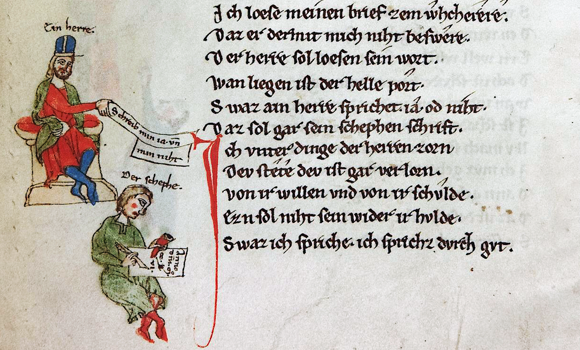 Ein herre.
Schreib min ia vn̄
min niht
Der schephe.
Ich loese meinen brief zem wͦcherere.
Daz er dermit mich niht beswere.
Der herre sol loesen sein wort.
Wan liegen ist der helle port.
Swaz ain herre sprichet. ia od niht.
Daz sol gar sein schephen schrift.
Ich vnter dinge der herren zorn
Dev stete dev ist gar verlorn.
von ir willen vnd von ir schvlde.
Ezn sol niht sein wider ir hvlde.
Swaz ich spriche. ich sprichz dvrch gvt.